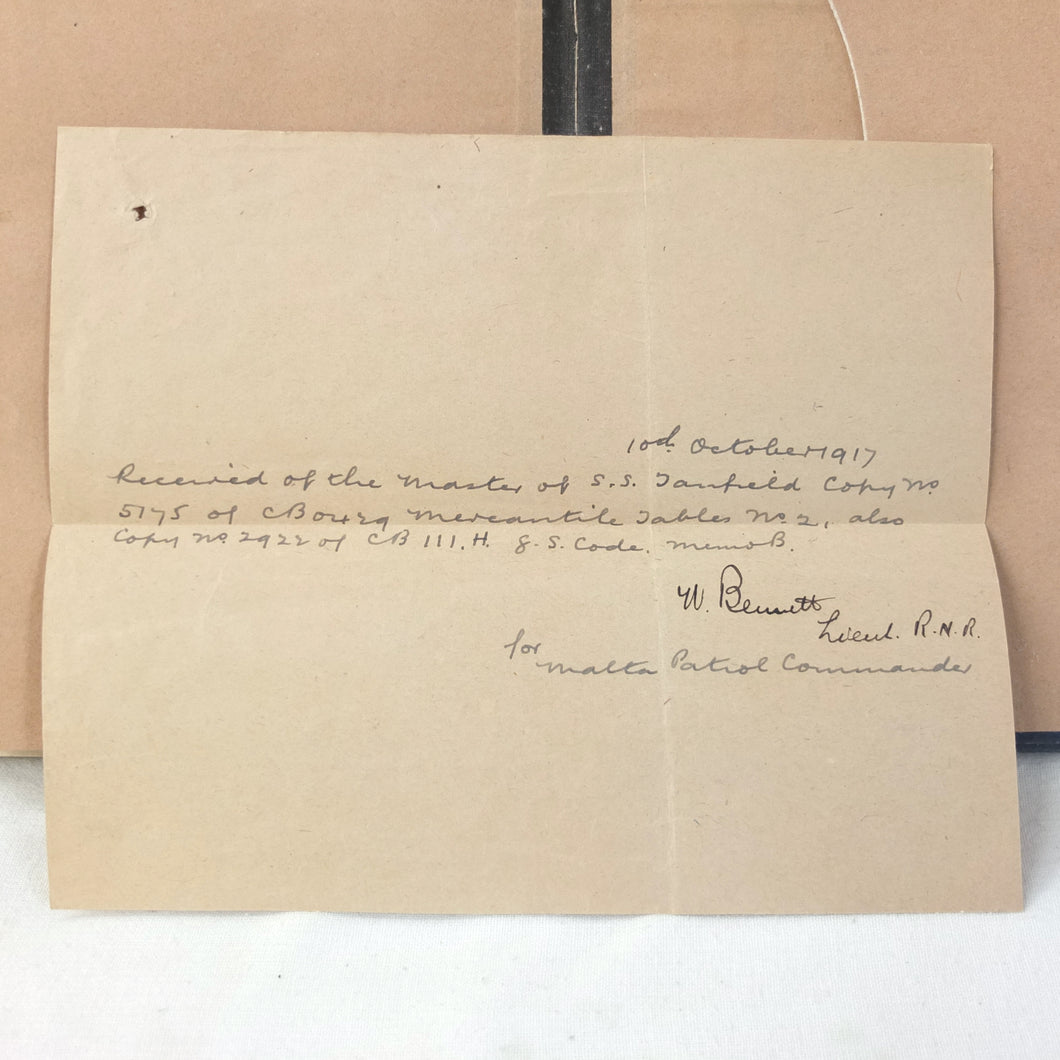 10th October 1917
Received of the Master of S.S. Tanfield Copy No
5175 of CB 0429 Mercantile Tables No. 2, also
Copy No. 2922 of CB 111. H. S. Code. Memo B.
W. Bennett
Lieut. R.N.R.
for
Malta Patrol Commander